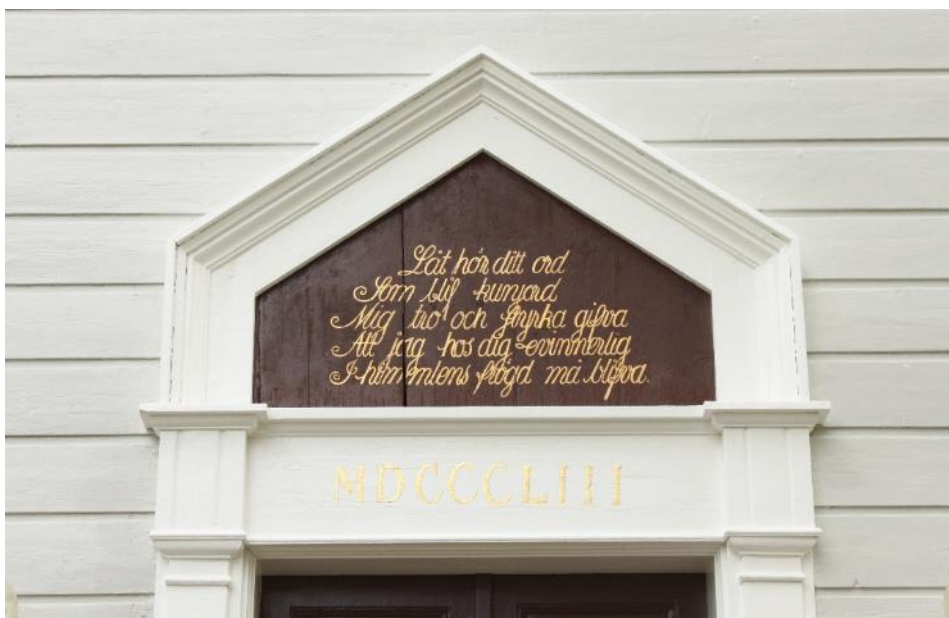 Låt hör ditt ord
Som blif kunjord
Mig tro och styrka gifva
Att jag hos dig evinnerlig
I himmlens frögd må blifva.
MDCCCLIII